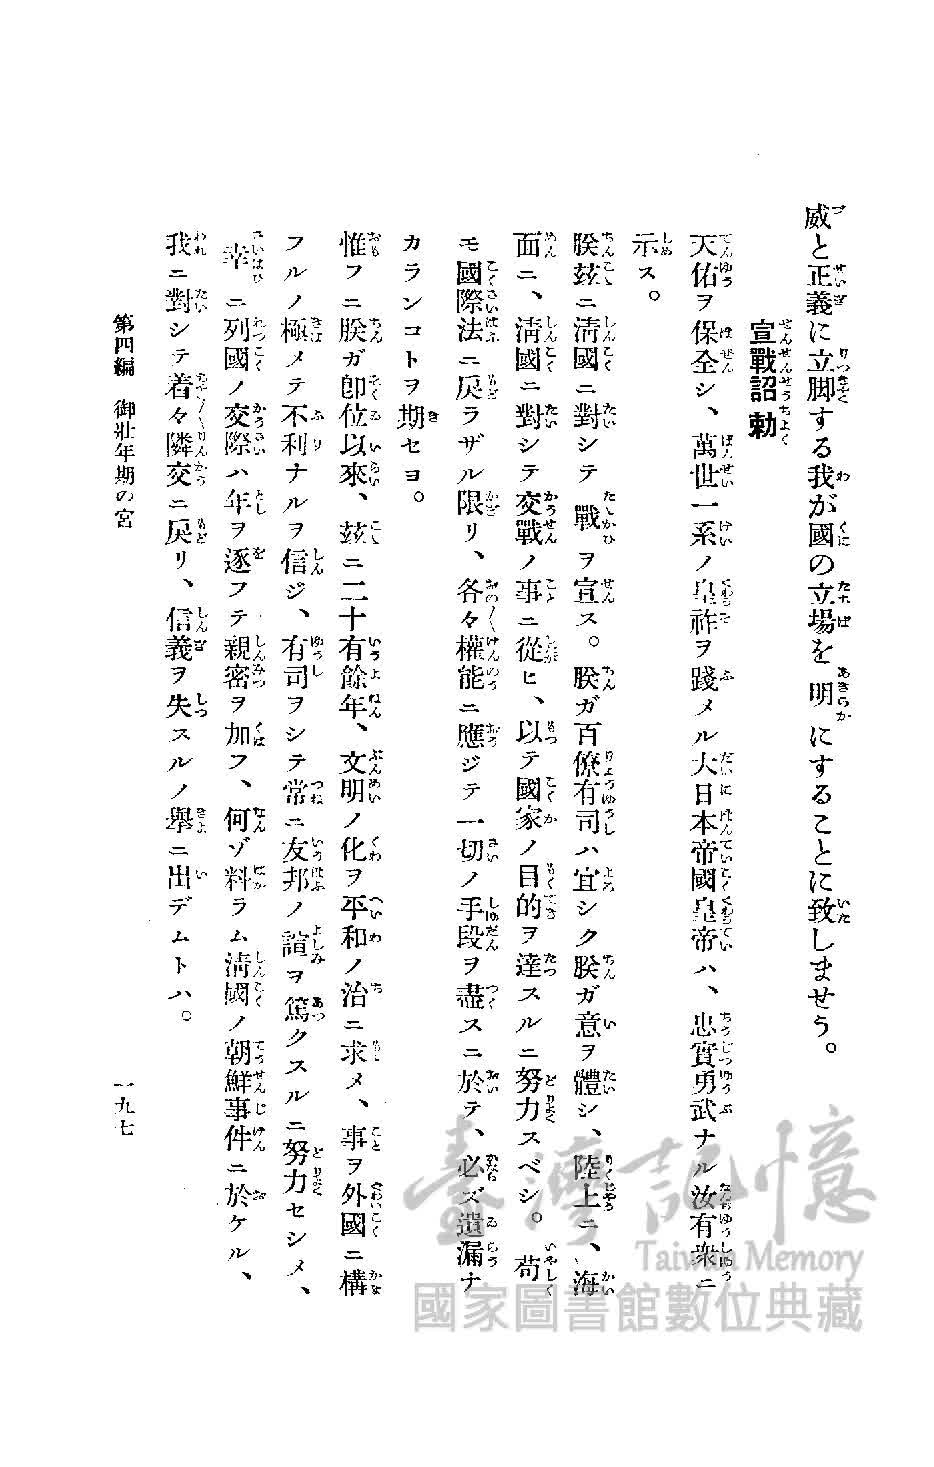 威と正義に立脚する我が國の立場を明にすることに致しませう。
宣戰詔勅
天佑ヲ保全シ、萬世一系ノ皇祚ヲ踐メル大日本帝國皇帝ハ、忠實勇武ナル汝有衆ニ
示ス。
朕玆ニ淸國ニ對シテ戰ヲ宣ス。朕ガ百僚有司ハ宜シク朕ガ意ヲ體シ、陸上ニ、海
面ニ、淸國ニ對シテ交戰ノ事ニ從ヒ、以テ國家ノ目的ヲ達スルニ努力スベシ。苟
モ國際法ニ戾ラザル限リ、各々權能ニ應ジテ一切ノ手段ヲ盡スニ於テ、必ズ遺漏ナ
カランコトヲ期セヨ。
惟フニ朕ガ卽位以來、玆ニ二十有餘年、文明ノ化ヲ平和ノ治ニ求メ、事ヲ外國ニ構
フルノ極メテ不利ナルヲ信ジ、有司ヲシテ常ニ友邦ノ誼ヲ篤クスルニ努力セシメ、
幸ニ列國ノ交際ハ年ヲ逐フテ親密ヲ加フ、何ゾ料ラム淸國ノ朝鮮事件ニ於ケル、
我ニ對シテ着々隣交ニ戾リ、信義ヲ失スルノ擧ニ出デムトハ。
第四編 御壯年期の宮
一九七
臺灣記憶
Taiwan Memory
國家圖書館數位典藏